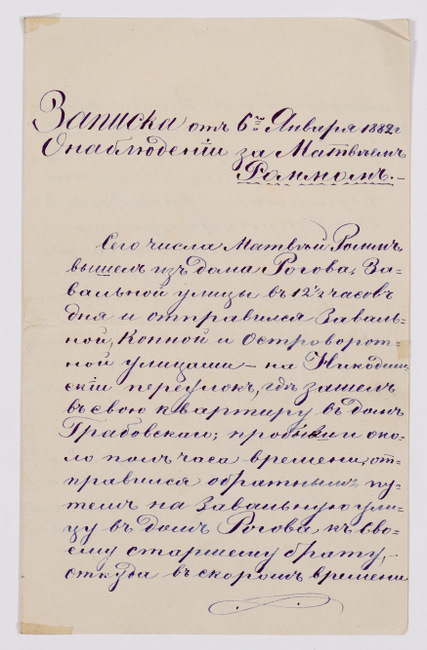 Записка отъ 6го Января 1882 г
О наблюденіи за Матвѣемъ
Роммомъ.–
Сего числа Матвѣй Роммъ,
вышелъ изъ дома Рогова, За=
вальной улицы въ 12½ часовъ
дня и отправился Заваль=
ной, Конной и Островорот=
ной улицами – на Никодим=
скій переулокъ, гдѣ зашелъ
въ свою квартиру въ домъ
Грабовскаго; пробывши око=
ло полъ часа времени, от=
правился обратнымъ пу=
темъ на Завальную ули=
цу въ домъ Рогова къ сво=
ему старшему брату, –
откуда въ скоромъ времени